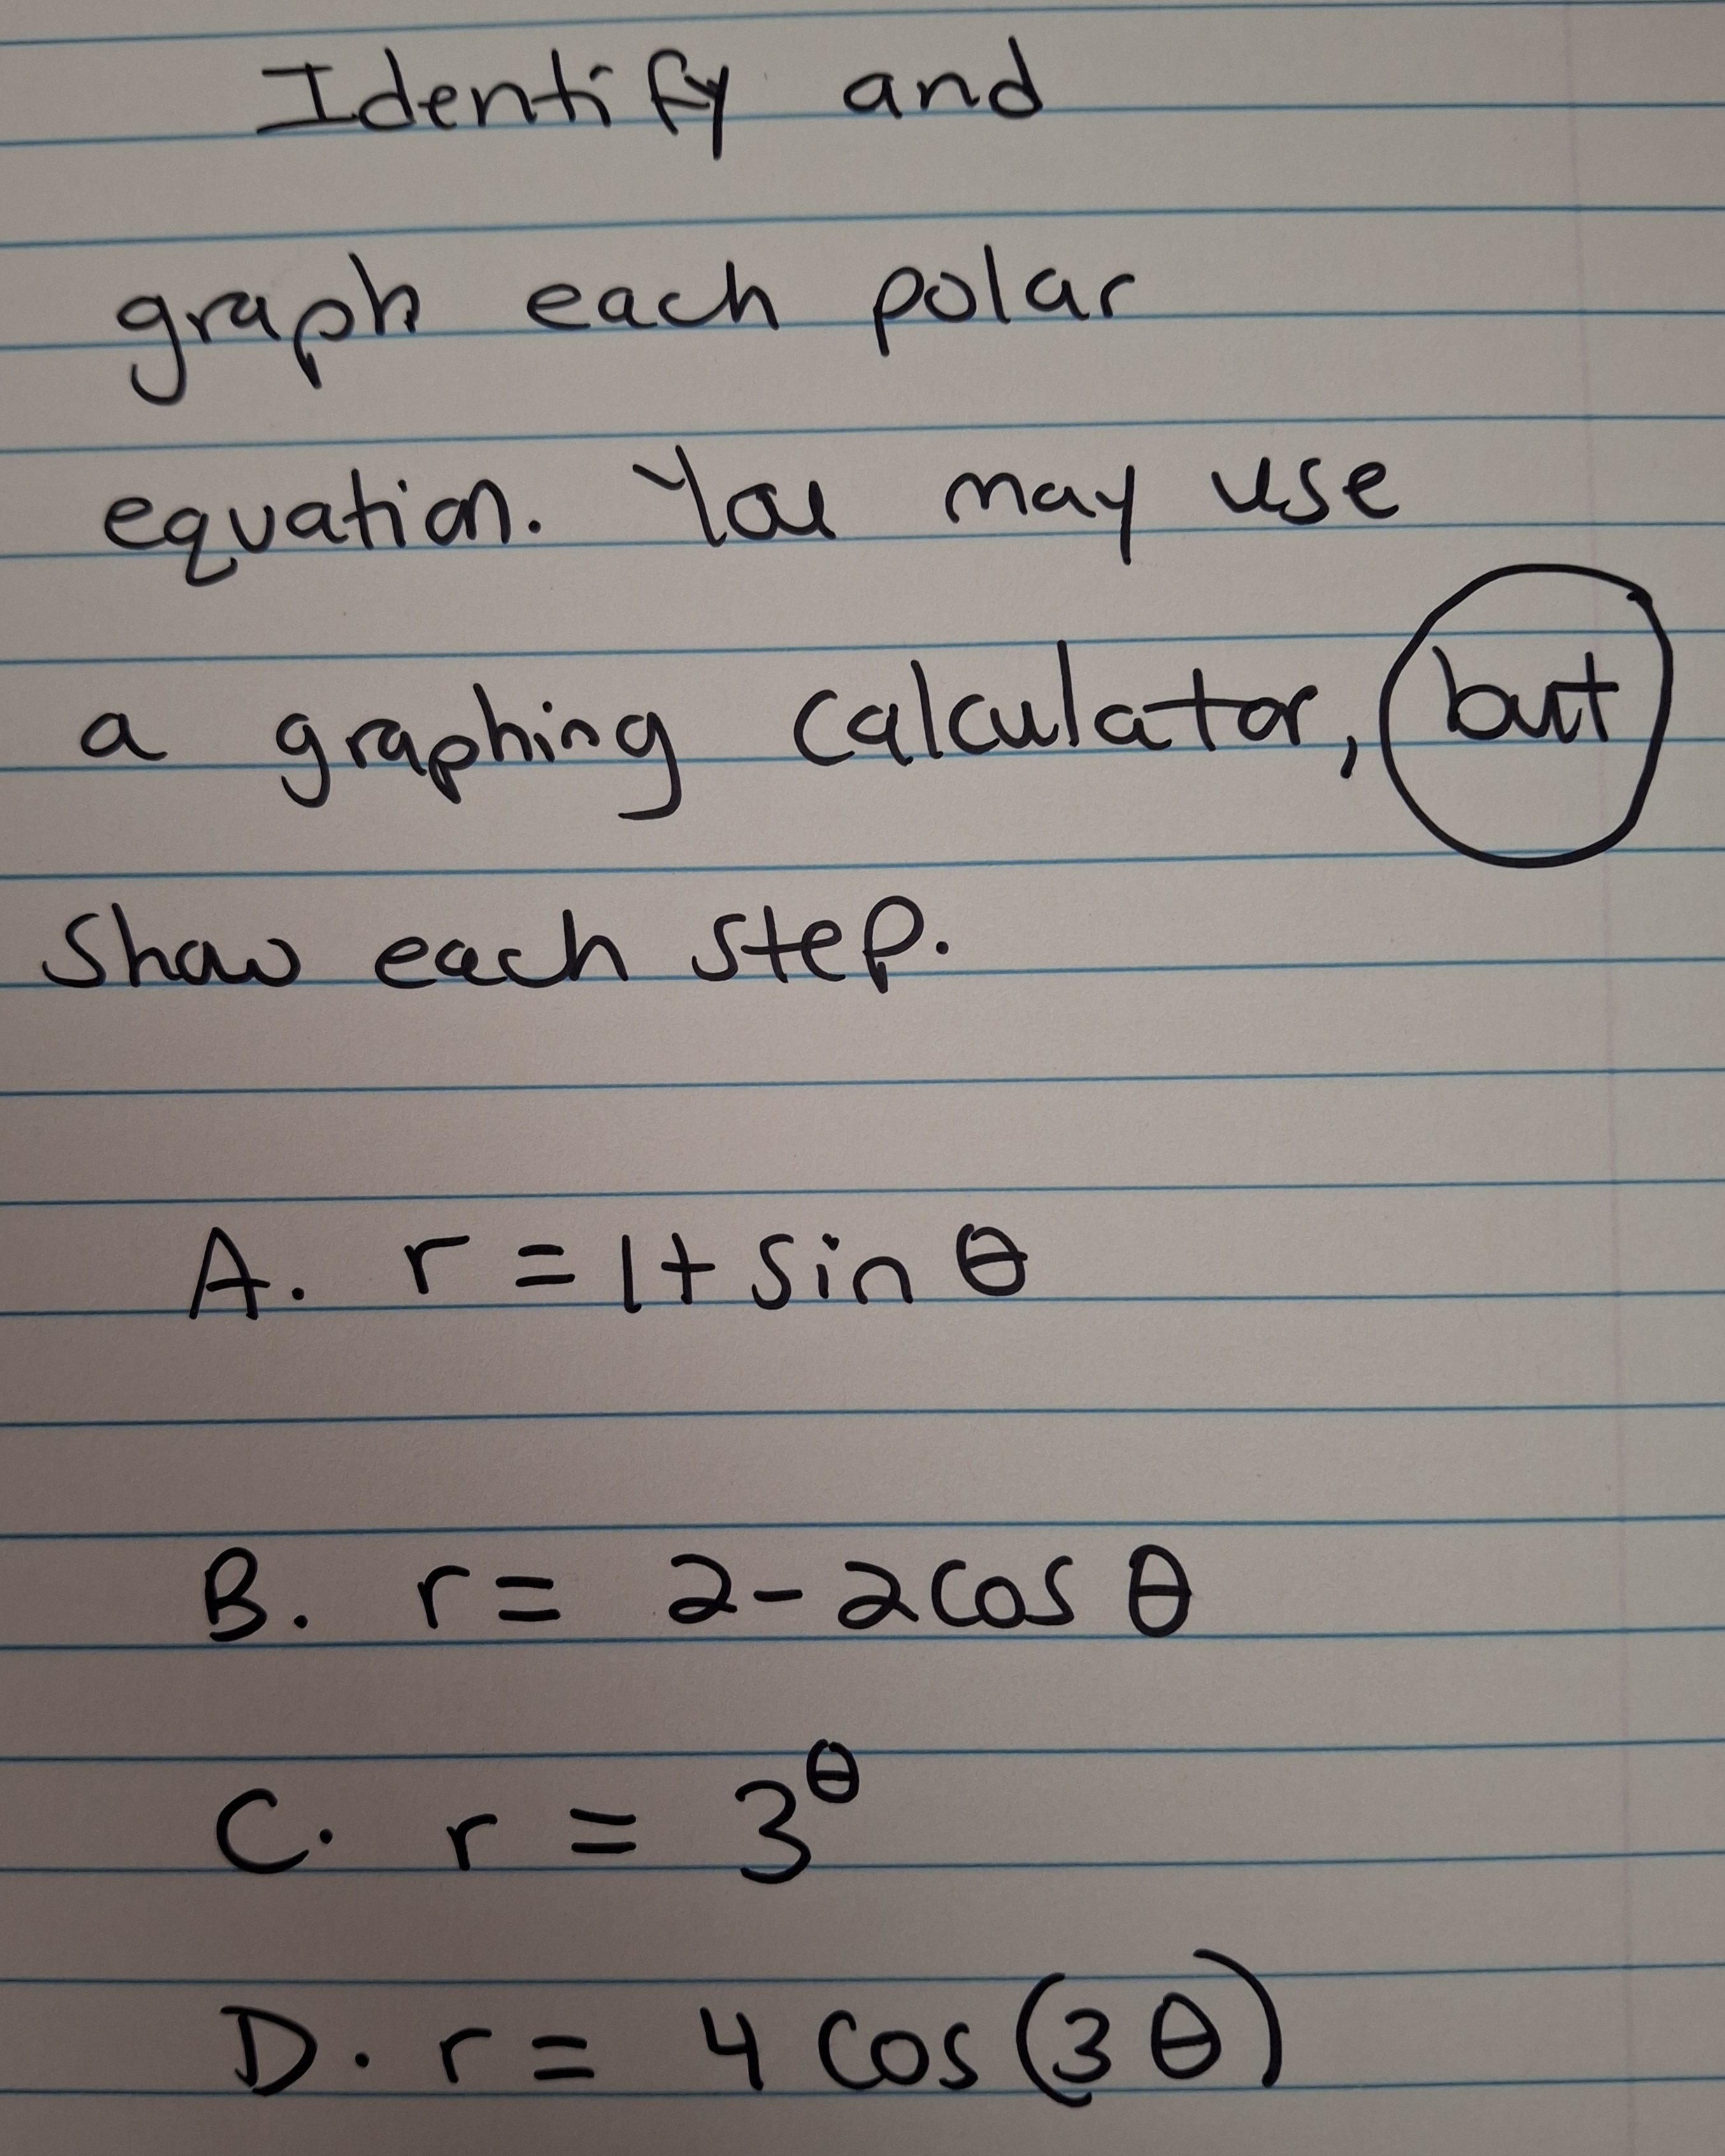 Identify and
graph each polar
equation. You may use
a graphing calculator, but
show each step.
A. r = 1 + sin θ
B. r = 2 - 2 cos θ
C. r = 3^θ
D. r = 4 cos (3θ)